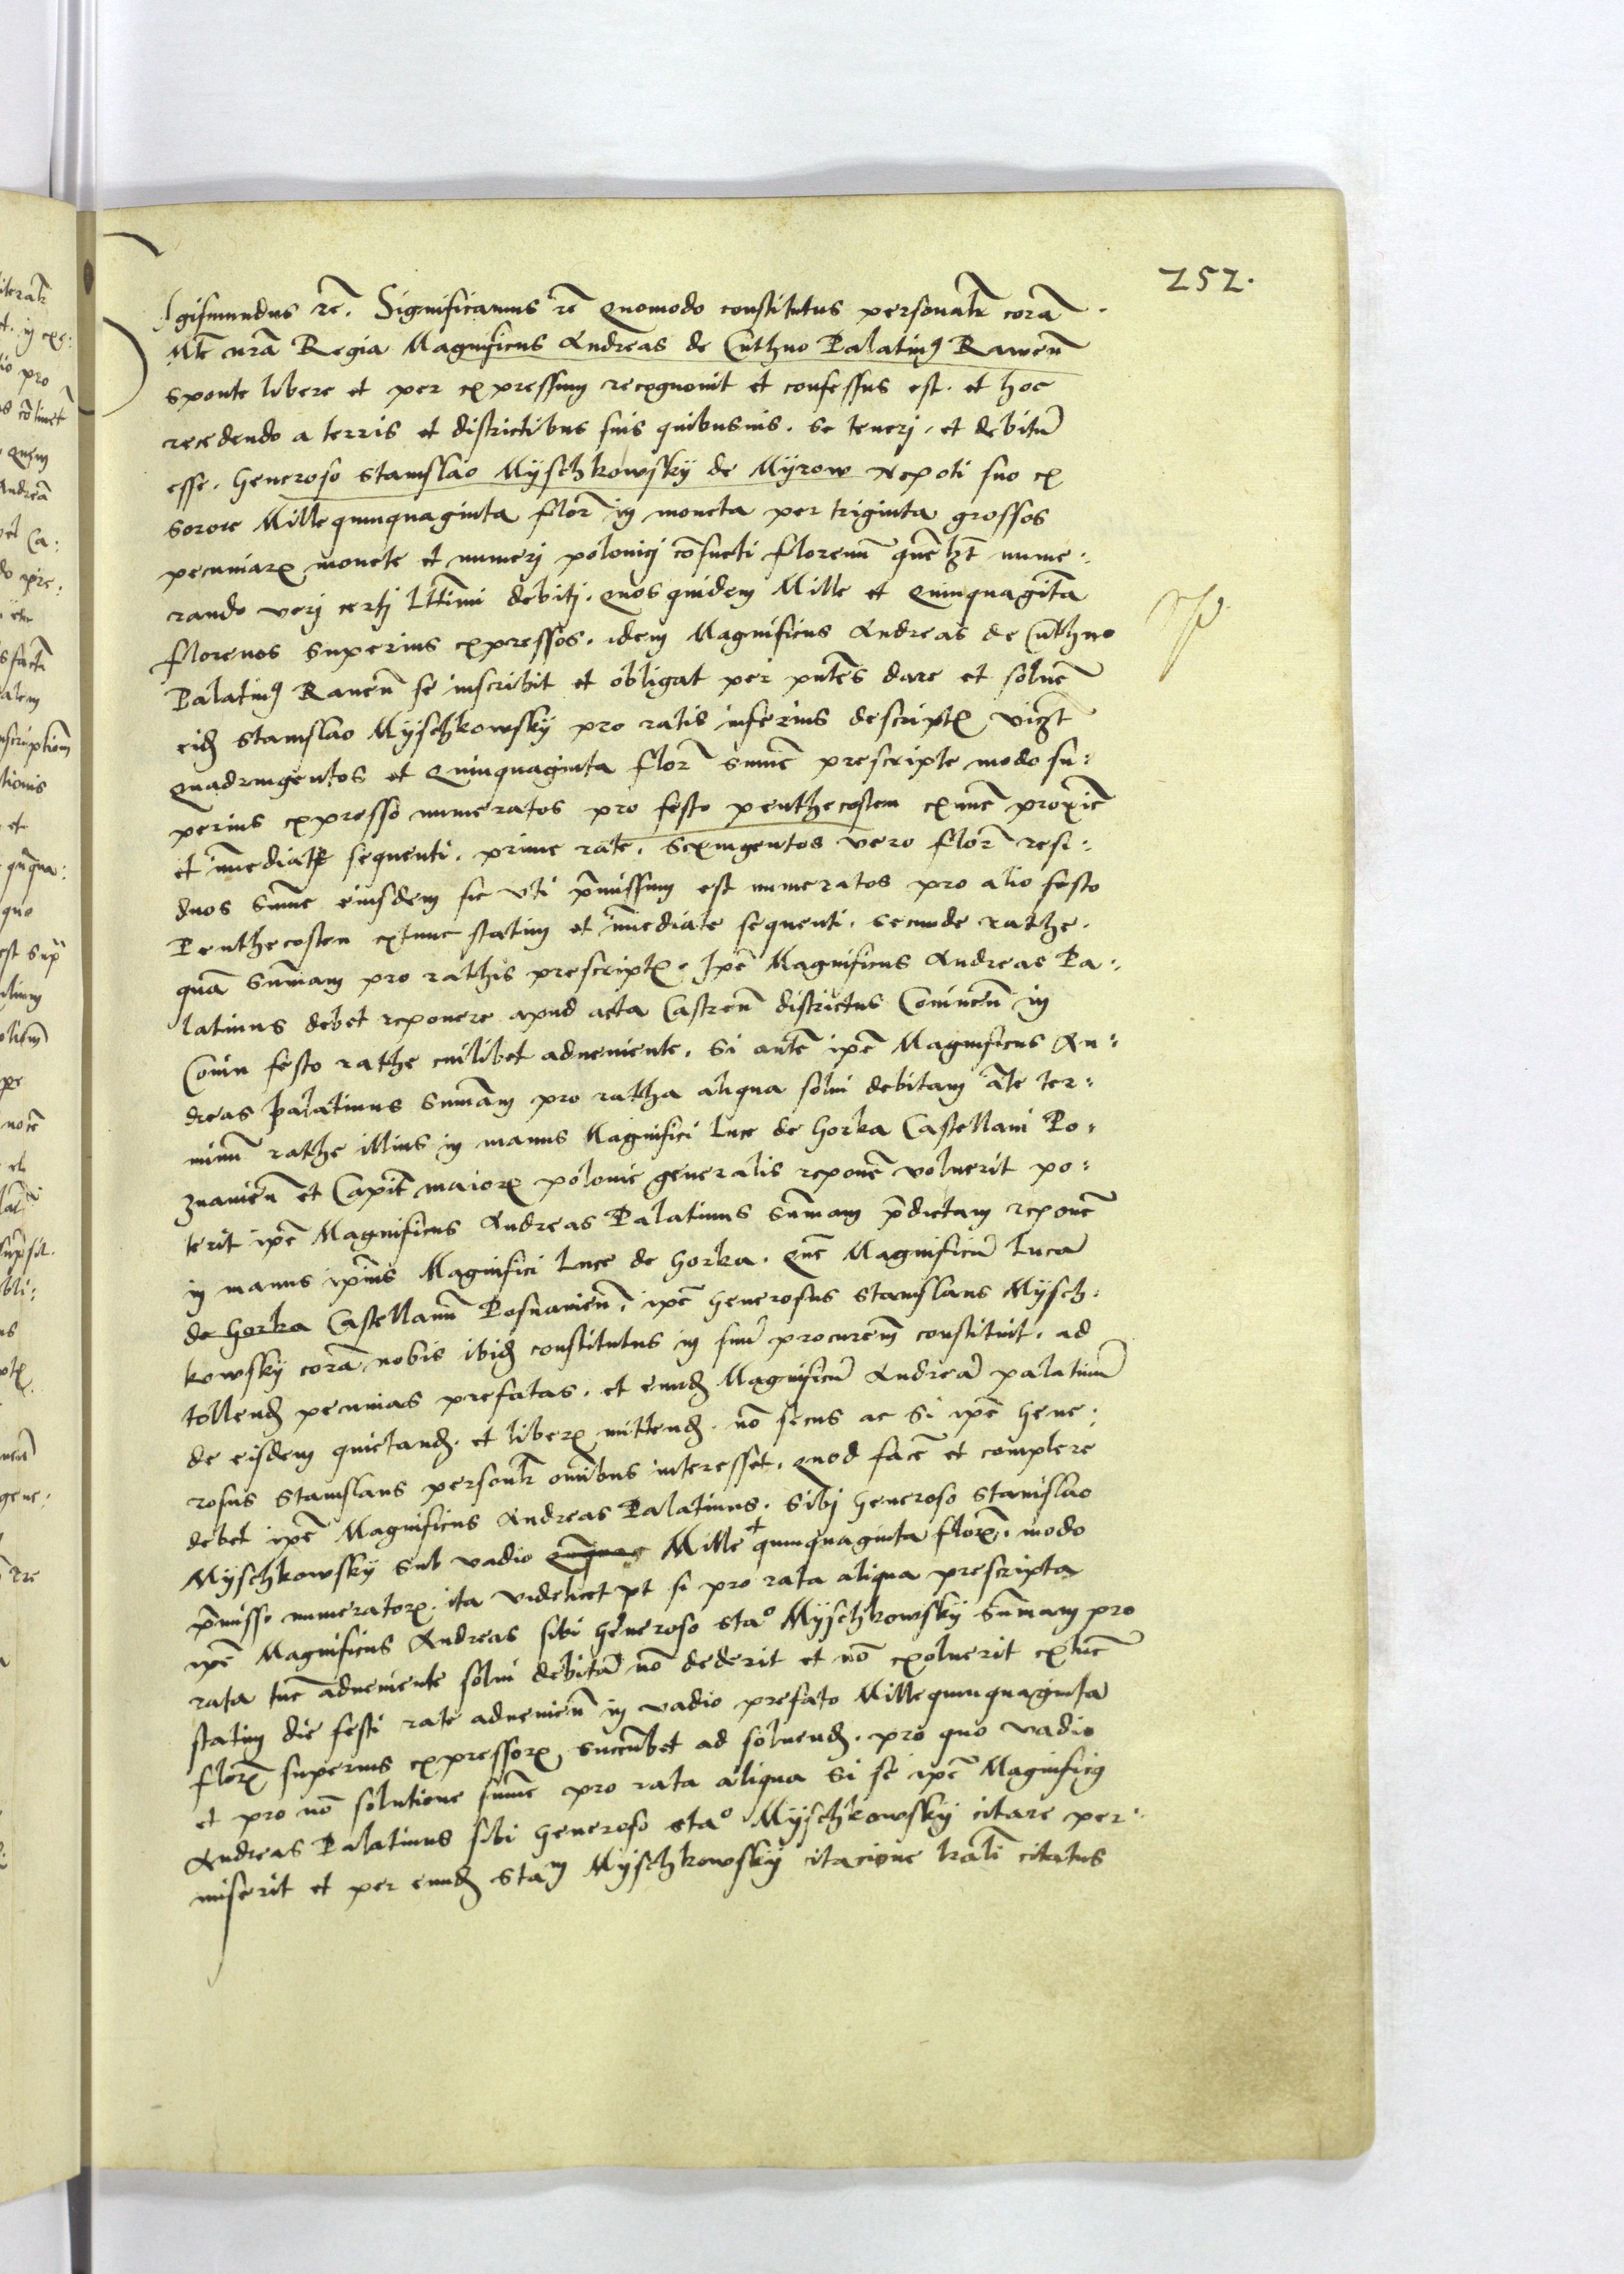 252.
Sigismundus rẽ. Significamus rẽ Quomodo constitutus personalr̃ corã
Mte nrã Regia Magnificus Andreas de Cuthno Palatinꝯ Raweñ
sponte libere et per expressum recognovit et confessus est. et hoc
recedendo a terris et districtibus suis quibusuis. se tenerj. et debitũ
esse. Generoso Stanislao Myschkowsky de Myrow Nepoti suo ex
sorore Mille quinquaginta florꝭ in moneta per triginta grossos
pecuniarꝝ monete et numerj polonicj cõsueti florenũ quẽlꝫt nume:
rando verj certj lttimi debitj. Quos quidem Mille et Quinquagita
florenos superius expressos. idem Magnificus Andreas de Cuthno
Palatinꝯ Raueñ se inscribit et obligat per pñtes dare et soluẽ
eidẽ Stanislao Myschkowsky pro ratis inferius descriptꝭ viꝫt
quadringentos et Quinquaginta florꝭ sume prescripte modo su:
perius expresso numeratos pro festo penthecosten exnũc proxiẽ
et imediate sequenti. prime rate. Sexingentos vero florꝭ resi:
duos sume eiusdem sic vti p̃missum est numeratos pro alio festo
Penthecosten extunc statim et imediate sequenti. secunde rathe.
quã summam pro rathis prescriptꝭ. Ipẽ Magnificus Andreas Pa:
latinus debet reponere apud acta Castreñ districtus Coninẽn in
Conin festo rathe cuilibet adueniente. Si autẽ ipẽ Magnificus An:
dreas palatinus sumãm pro ratha aliqua solui debitam ãte ter:
minũ rathe illius in manus Magnifici Luce de Gorka Castellani Po:
znanieñ et Capitẽ maiorꝭ polonie generalis reponẽ voluerit po:
terit ipẽ Magnificus Andreas Palatinus summam p̃dictam reponẽ
in manus ipĩus Magnifici Luce de Gorka. Quẽ Magnificũ Lucã
de Gorka Castellanũ Posnanieñ. ipẽ Generosus Stanislaus Mysch:
kowsky corã nobis ibidẽ constitutus in suũ procurẽm constituit. ad
tollendẽ pecunias prefatas. et eundẽ Magnificũ Andreã palatinũ
de eisdem quietandẽ. et liberꝝ mittendẽ. nõ secus ac si ipẽ Gene:
rosus Stanislaus personlr̃ omibus interesset. Quod facẽ et complere
debet ipẽ Magnificus Andreas Palatinus. Sibj Generoso Stanislao
Myschkowsky sub vadio Mille + quinquaginta florꝝ. modo
p̃misso numeratorꝝ. ita videlicet ꝙt si pro rata aliqua prescripta
ipẽ Magnificus Andreas sibi Generoso Stao Myschkowsky summam pro
rata tũc adueniente solui debitã nõ dederit et nõ exoluerit extũc
statim die festi rate aduenieñ in vadio prefato Mille quinquaginta
florꝝ superius expressorꝝ succũbet ad soluendẽ. pro quo vadio
et pro nõ solutione sume pro rata aliqua si se ipẽ Magnificꝯ
Andreas Palatinus sibi Generoso Stao Myschkowsky citare per:
miserit et per eundẽ Stam Myschkowsky citacione trãli citatus